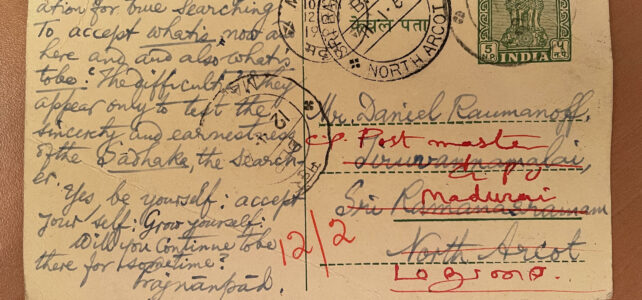 ation for true searching
To accept what's, now and
here and and also 'what's
to be.' The difficulties they
appear only to test the
sincerity and earnestness
of the Sadhaka, the search-
er.
Yes, be yourself: accept
your self: Grow yourself.
Will you continue to be
there for sometime?
Prajnanpad.
केवल पता
NORTH ARCOT
5
INDIA
Mr. Daniel Raumanoff,
c/o Post master
Tiruvannamalai,
Madurai
Sri Ramanasramam
North Arcot
12/2
மதுரை